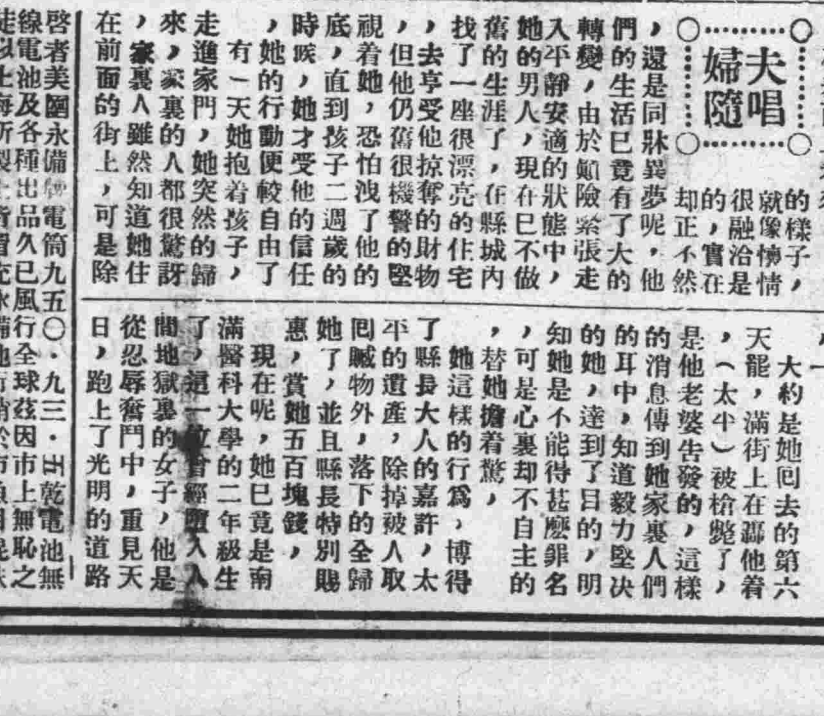 夫唱
婦隨
的樣子，
就像懷情
很融洽是
的，實在
却正不然
，還是同牀異夢呢，他
們的生活已竟有了大的
轉變，由於顚險緊張走
入平靜安適的狀態中，
她的男人，現在已不做
舊的生涯了，在縣城內
找了一座很漂亮的住宅
，去享受他掠奪的財物
，但他仍舊很機警的堅
視着她，恐怕洩了他的
底，直到孩子二週歲的
時候，她才受他的信任
，她的行動便較自由了
有一天她抱着孩子，
走進家門，她突然的歸
來，家裏的人都很驚訝
，家裏人雖然知道她住
在前面的街上，可是除
大約是她囘去的第六
天罷，滿街上在轟他着
，（太平）被槍斃了，
是他老婆告發的，這樣
的消息傳到她家裏人們
的耳中，知道毅力堅决
的她，達到了目的，明
知她是不能得甚麽罪名
，可是心裏却不自主的
，替她擔着驚，
她這樣的行爲，博得
了縣長大人的嘉許，太
平的遺產，除掉被人取
囘贓物外，落下的全歸
她了，並且縣長特別賜
惠，賞她五百塊錢，
現在呢，她已竟是南
滿醫科大學的二年級生
了，這一位曾經墮入人
間地獄裏的女子，他是
從忍辱奮鬥中，重見天
日，跑上了光明的道路
啓者美國永備牌電筒九五〇·九三·五乾電池無
線電池及各種出品久已風行全球茲因市上無恥之